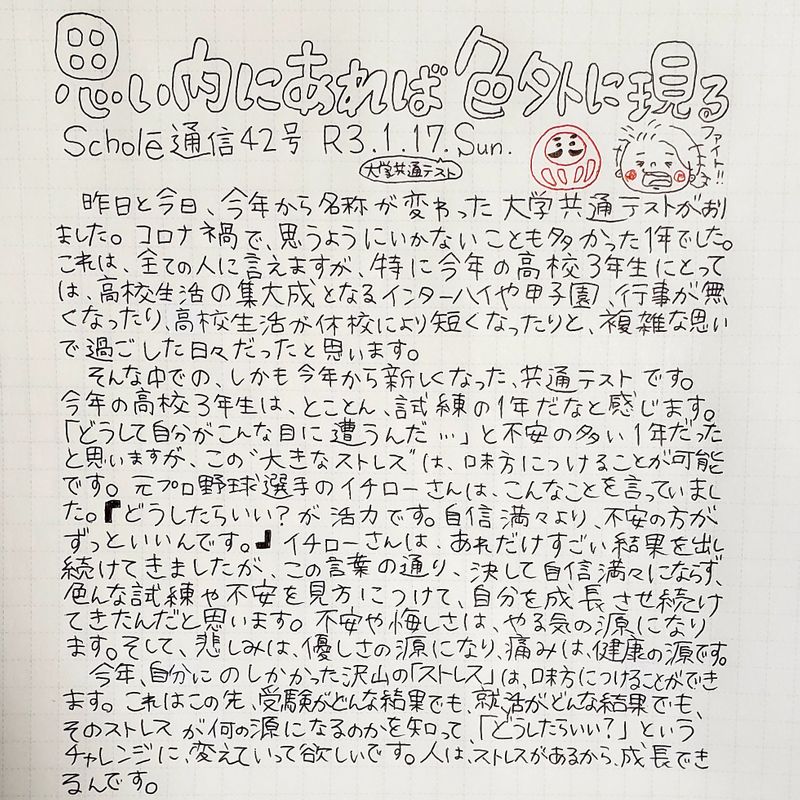 思い内にあれば色外に現る
Scholē通信42号 R3.1.17.Sun.
大学共通テスト
ファイト!!
昨日と今日、今年から名称が変わった大学共通テストがあり
ました。コロナ禍で、思うようにいかないことも多かった1年でした。
これは、全ての人に言えますが、特に今年の高校3年生にとって
は、高校生活の集大成となるインターハイや甲子園、行事が無
くなったり、高校生活が休校により短くなったりと、複雑な思い
で過ごした日々だったと思います。
そんな中での、しかも今年から新しくなった、共通テストです。
今年の高校3年生は、とことん、試練の1年だなと感じます。
「どうして自分がこんな目に遭うんだ…」と不安の多い1年だった
と思いますが、この"大きなストレス"は、味方につけることが可能
です。元プロ野球選手のイチローさんは、こんなことを言っていまし
た。『どうしたらいい?が活力です。自信満々より、不安の方が
ずっといいんです。』イチローさんは、あれだけすごい結果を出し
続けてきましたが、この言葉の通り、決して自信満々にならず、
色んな試練や不安を見方につけて、自分を成長させ続け
てきたんだと思います。不安や悔しさは、やる気の源になり
ます。そして、悲しみは、優しさの源になり、痛みは、健康の源です。
今年、自分にのしかかった沢山の「ストレス」は、味方につけることができ
ます。これはこの先、受験がどんな結果でも、就活がどんな結果でも、
そのストレスが何の源になるのかを知って、「どうしたらいい?」という
チャレンジに、変えていって欲しいです。人は、ストレスがあるから、成長でき
るんです。